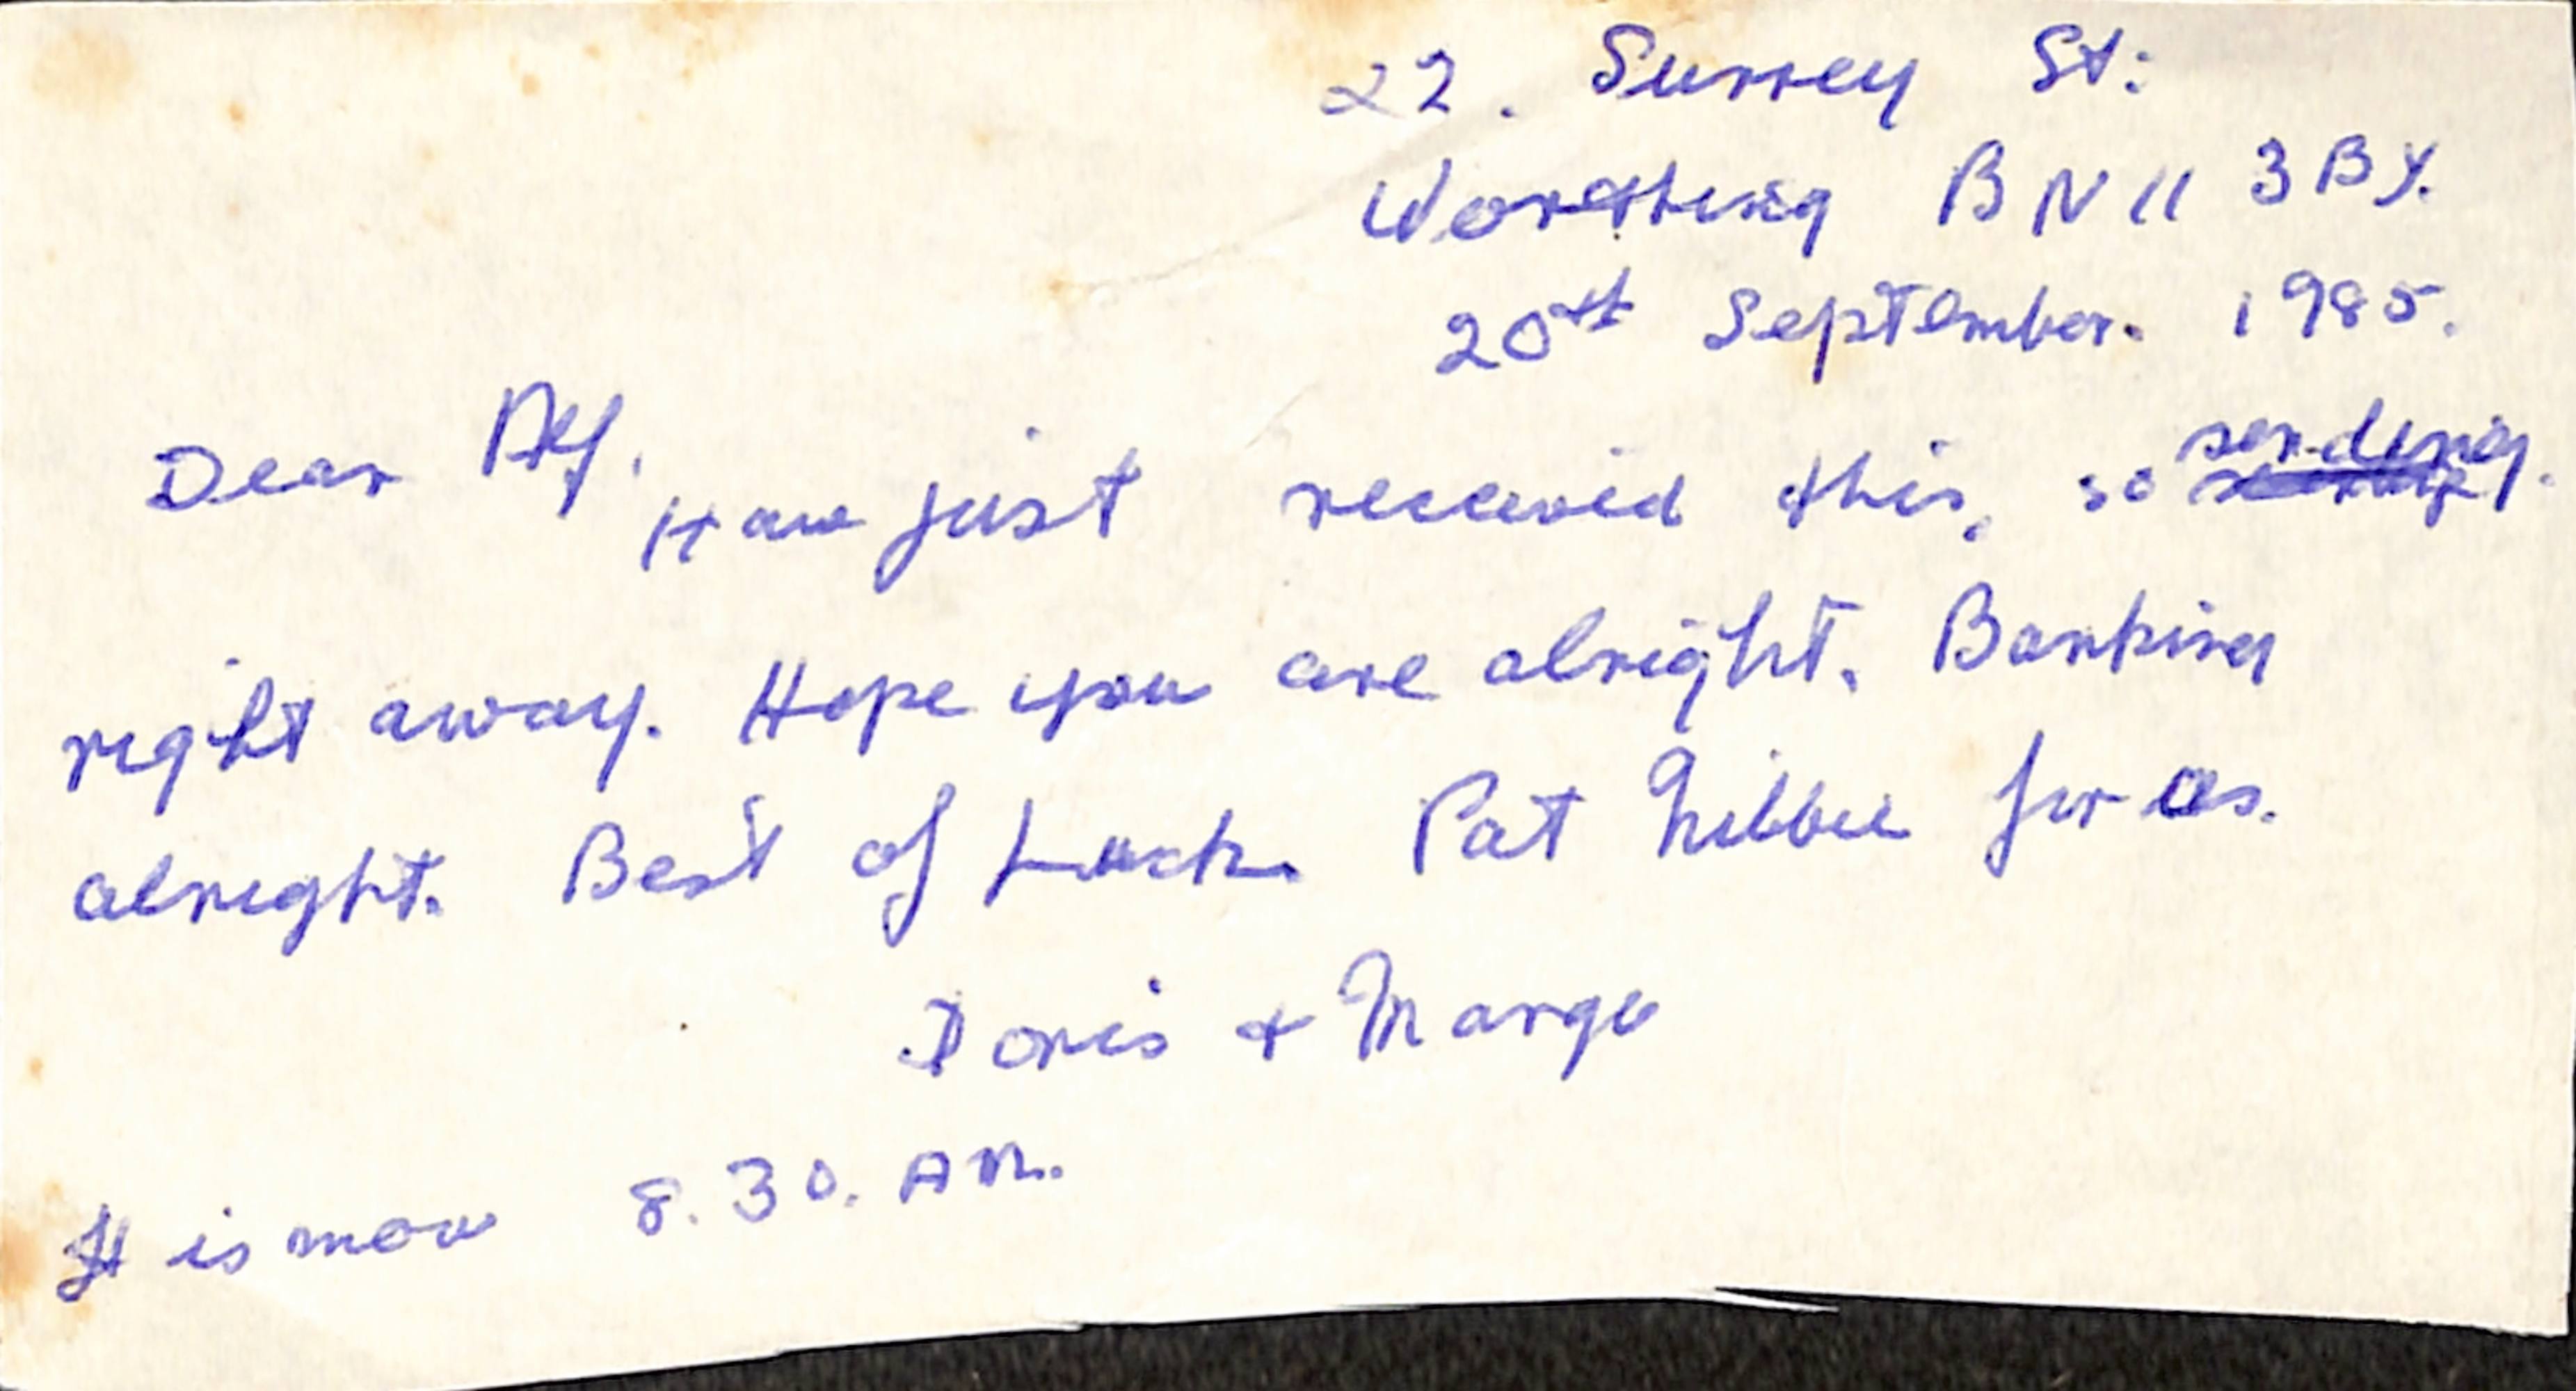 22. Surrey St:
Worthing BN11 3BY.
20th September. 1985.
Dear Alf.
Have just received this, so sending.
right away. Hope you are alright. Banking
alright. Best of Luck. Pat for us.
Doris & Margo
It is now 8.30. AM.